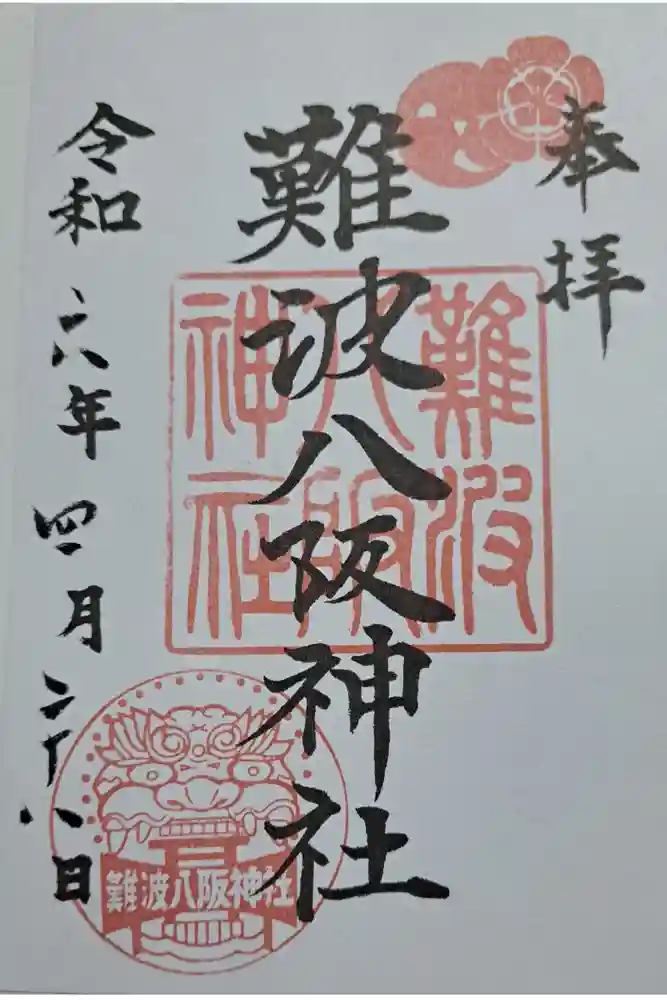 奉拝
難波八阪神社
難波
八阪
神社
令和六年四月二十八日
難波八阪神社